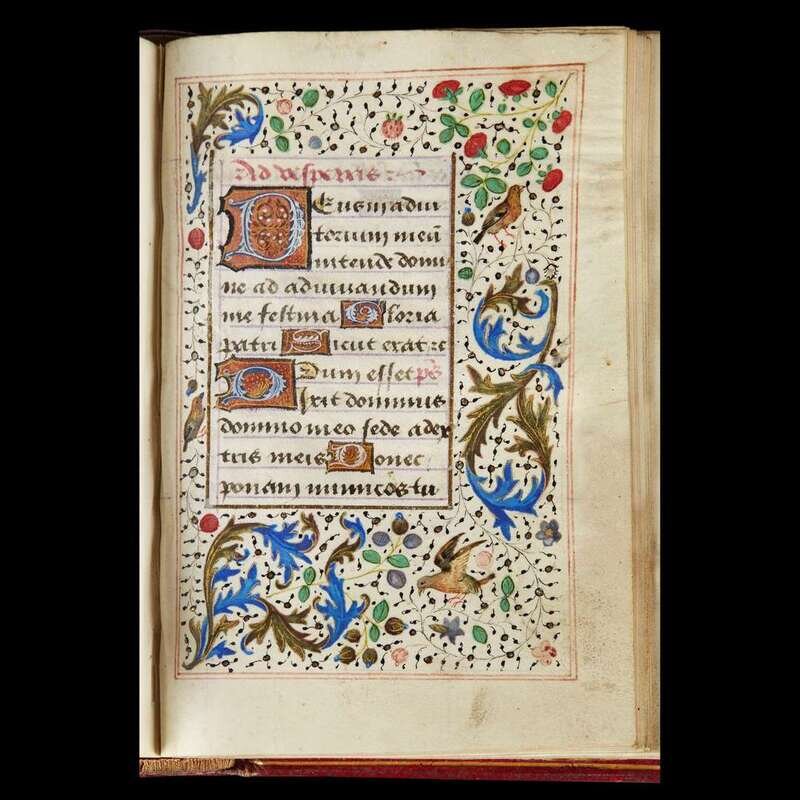 Ad vesperas
DEus in adiu
torium meū
intende domi
ne ad adiuuandum
me festina Gloria
patri Sicut erat ⁊c
Dum esset ps̄
Dixit dominus
domino meo sede a dex
tris meis Donec
ponam inimicos tu